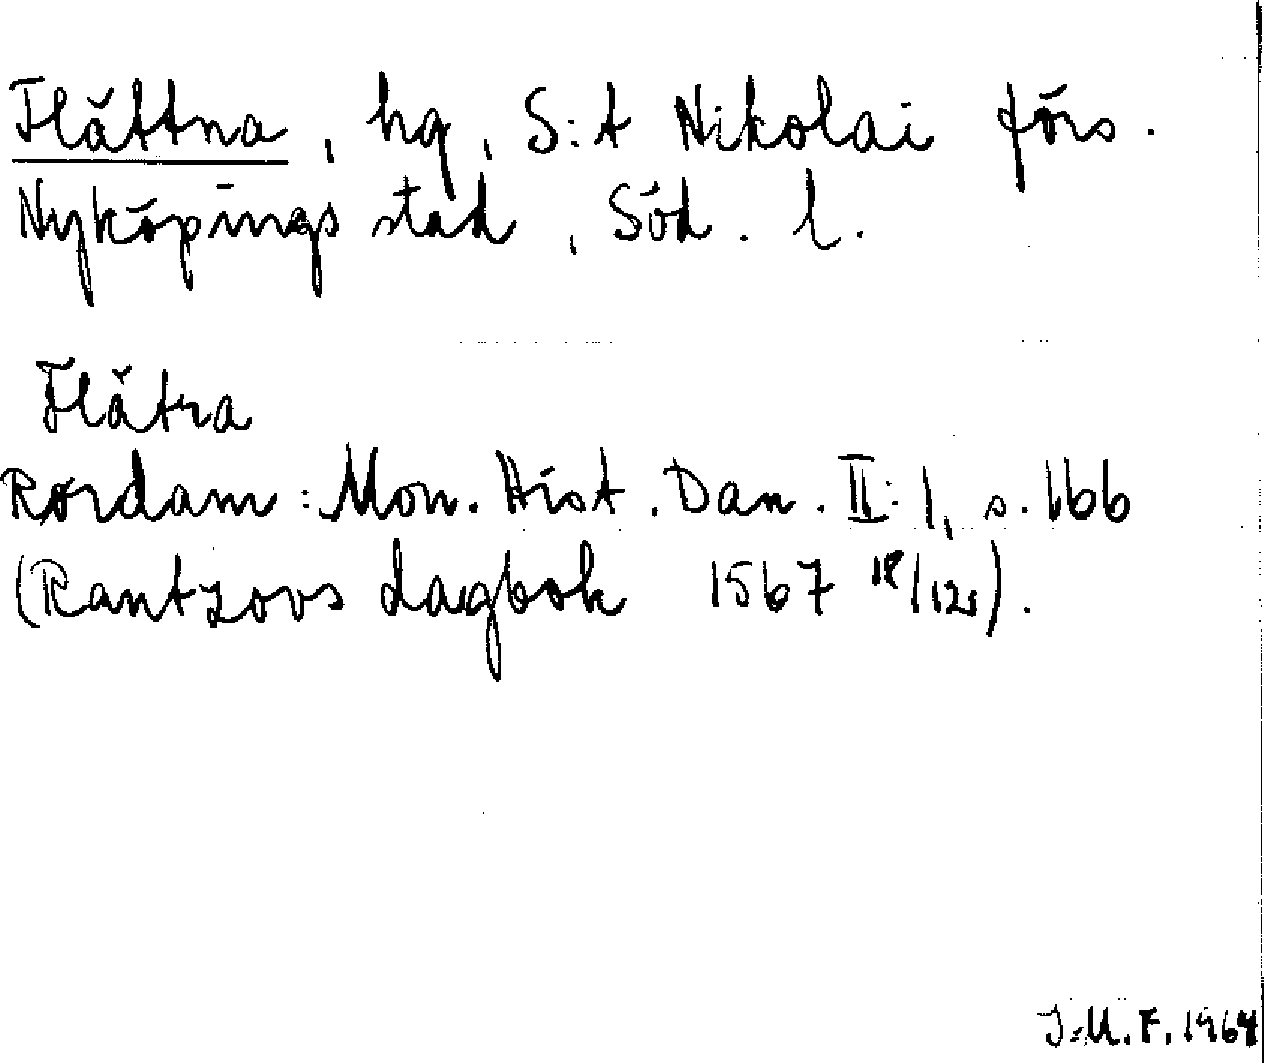 Flättna, hg, S:t Nikolai förs.
Nyköpings stad, Söd. l.
Flätra
Rørdam: Mon. Hist. Dan. II:1, s. 166
(Rantzovs dagbok 1567 18/12).
J.M.F. 1964